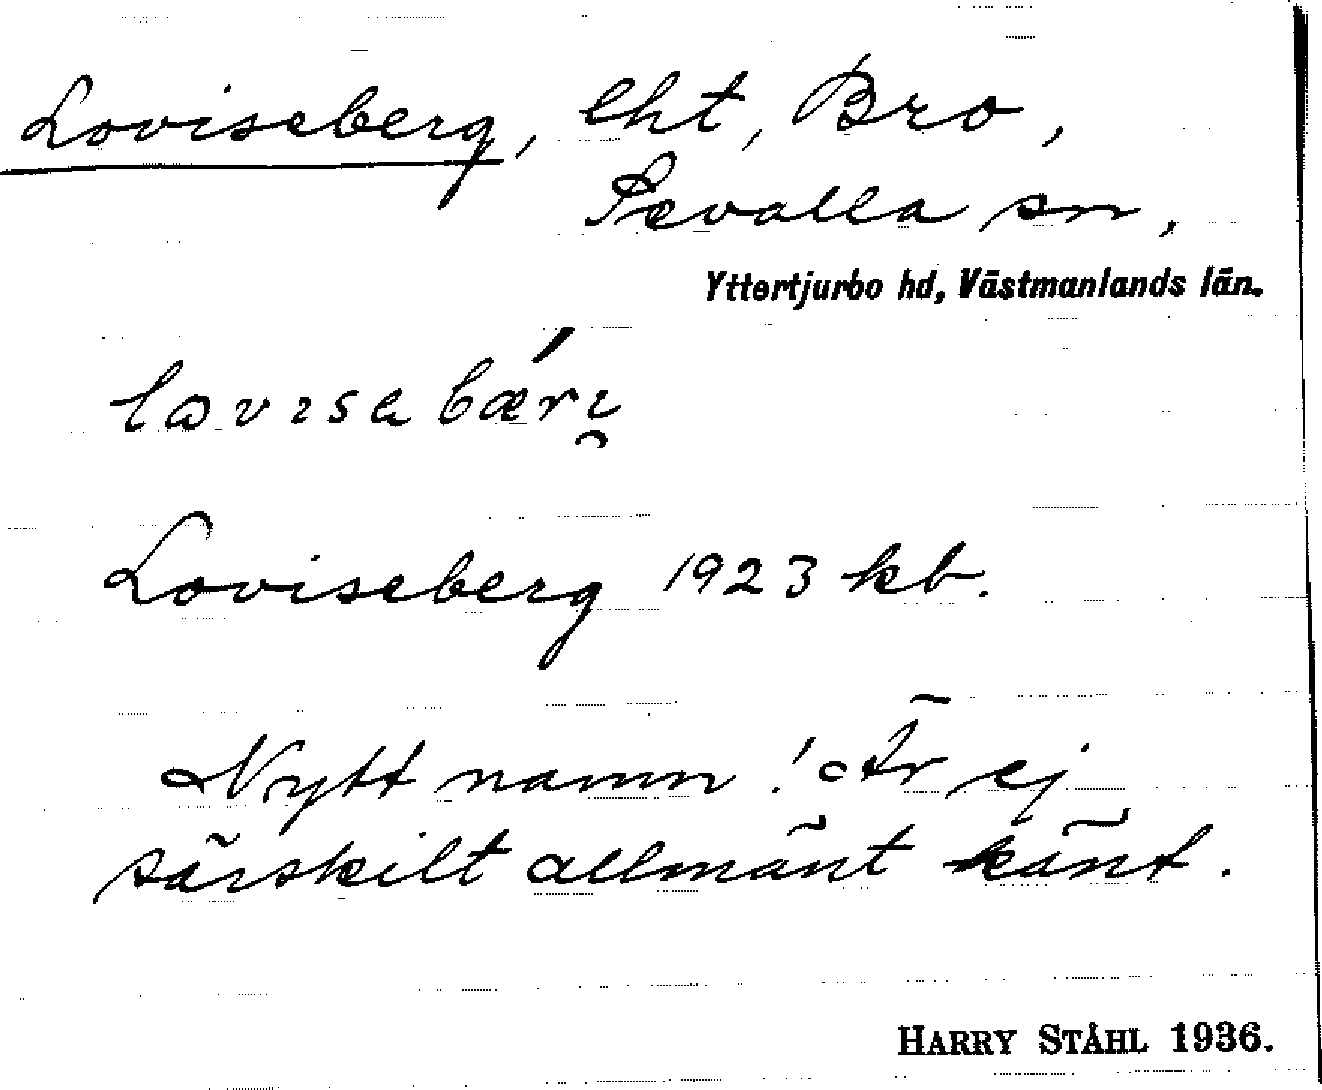 Loviseberg, lht, Bro,
Sevalla sn,
Yttertjurbo hd, Västmanlands län.
Loviseberg 1923 kb.
Nytt namn! Är ej
särskilt allmänt känt.
HARRY STÅHL 1936.